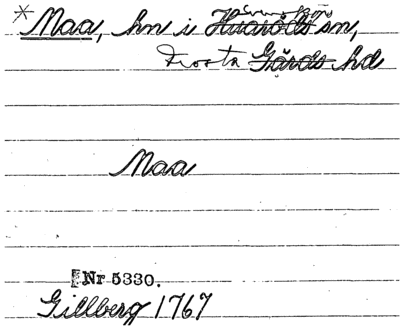 *Maa, hn i Huaröds sn,
Frosta Gärds hd
Maa
Nr 5330.
Gillberg 1767